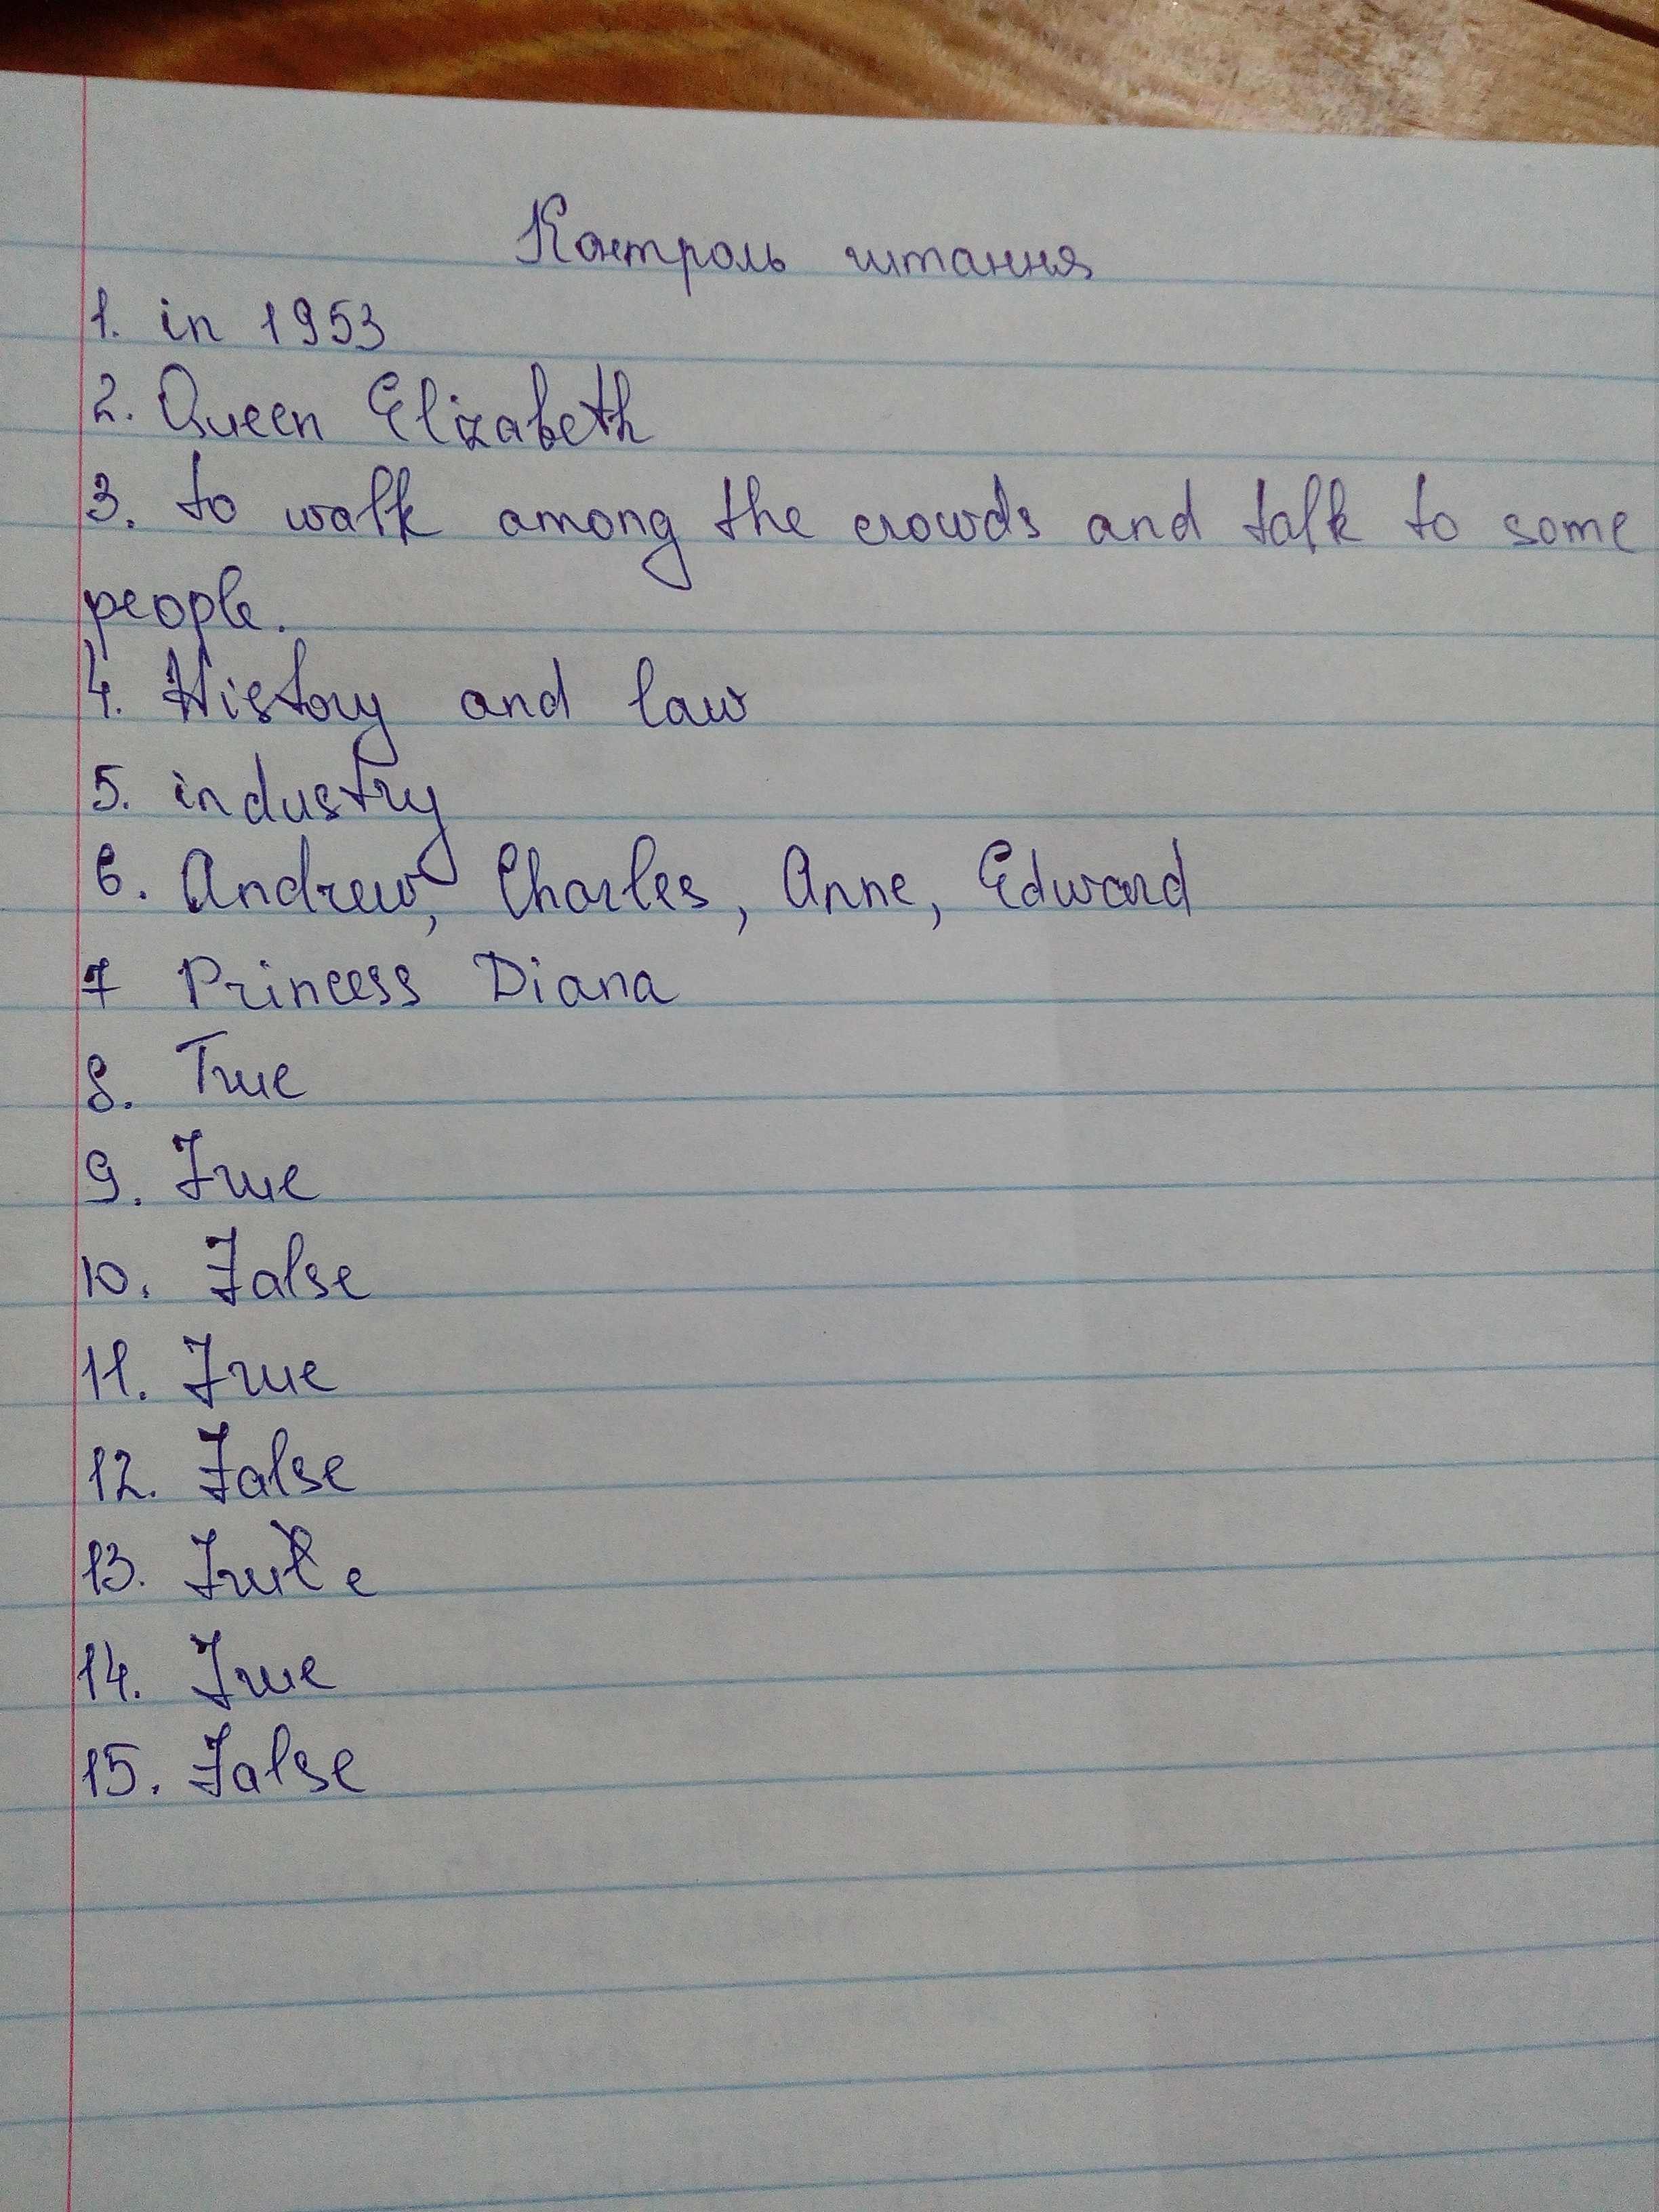 Контроль читання
1. in 1953
2. Queen Elizabeth
3. to walk among the crowds and talk to some
people.
4. History and law
5. industry
6. Andrew, Charles, Anne, Edward
7 Princess Diana
8. True
9. True
10. False
11. True
12. False
13. True
14. True
15. False